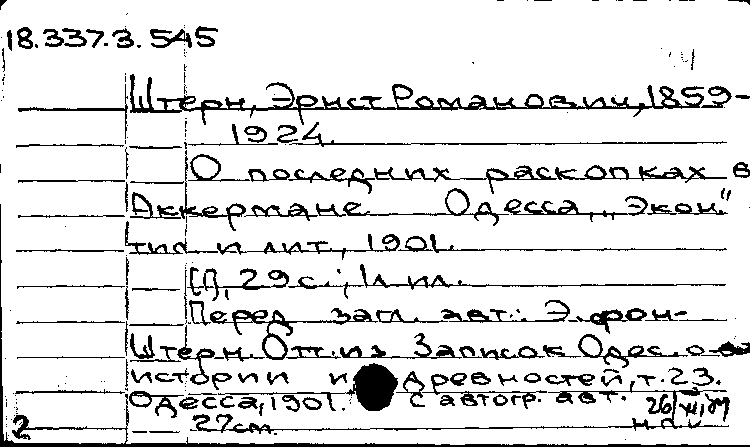 18.337.3.545
Штерн, Эрнст Романович, 1859-
1924.
О последних раскопках в
Аккермане Одесса, „Экон."
тип. и лит., 1901.
[1], 29 с.; 1 л. ил.
Перед загл. авт.: Э. фон-
Штерн. Отт. из Записок Одес. о-ва
истории и древностей, т. 23.
Одесса, 1901. С автогр. авт.
27 см.
2